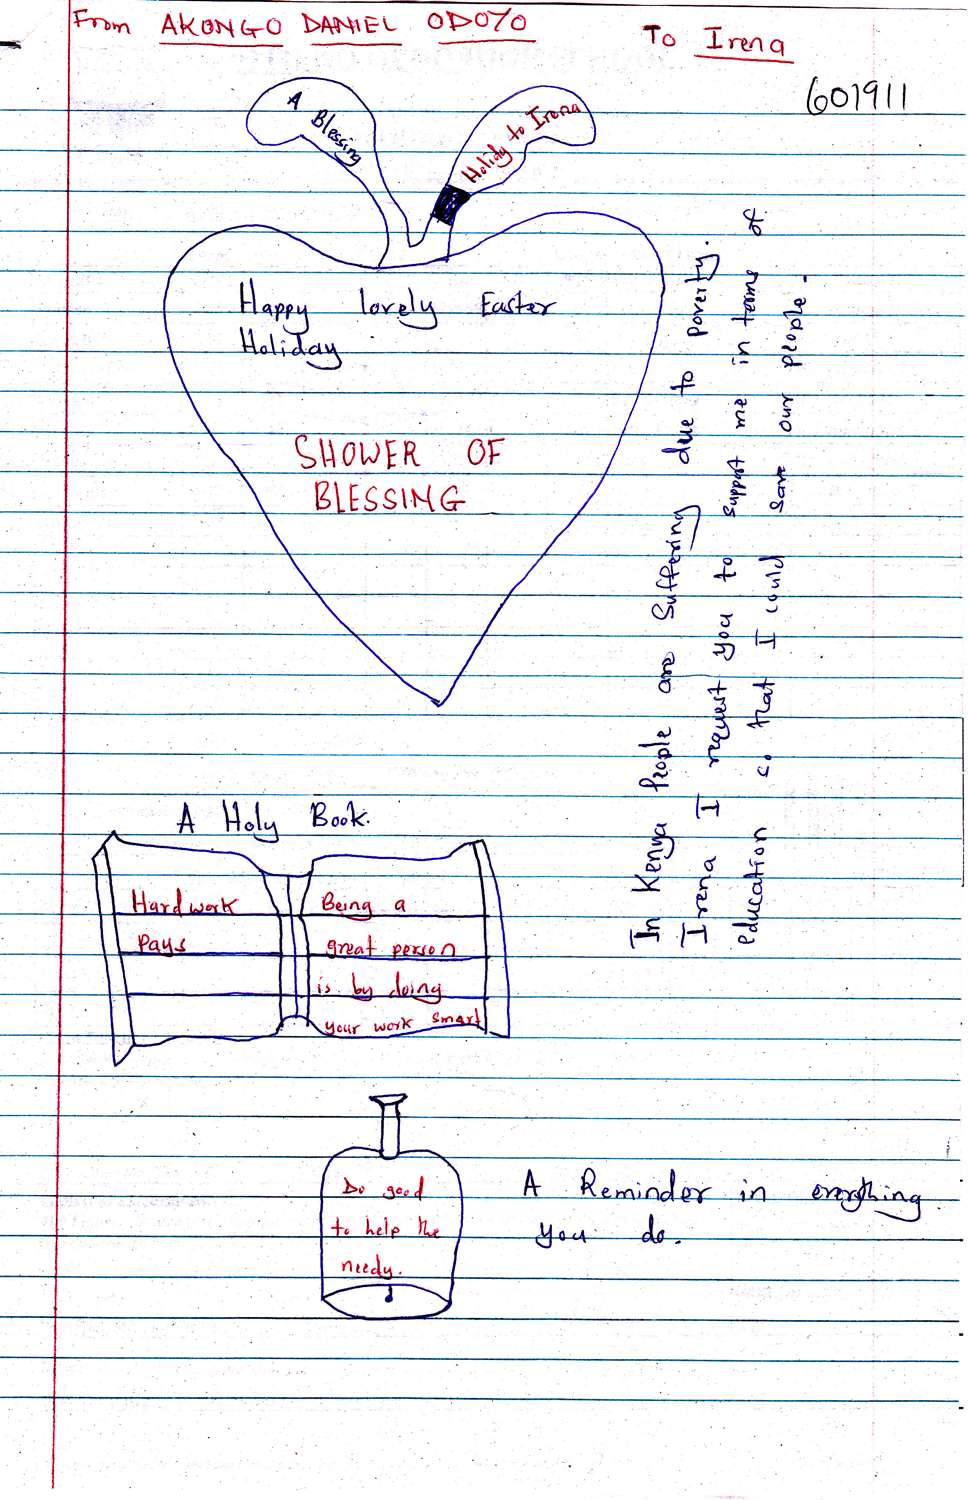 From AKONGO DANIEL ODOYO
To Irena
601911
A Blessing
Holidy to Irena
Happy lovely Easter
Holiday
SHOWER OF
BLESSING
In Kenya People are Suffering due to poverty.
Irena I request you to support me in terms of
education so that I could save our people.
A Holy Book.
Hardwork
Pays
Being a
great person
is by doing
your work smart
Do good
to help the
needy.
A Reminder in everything
you do.